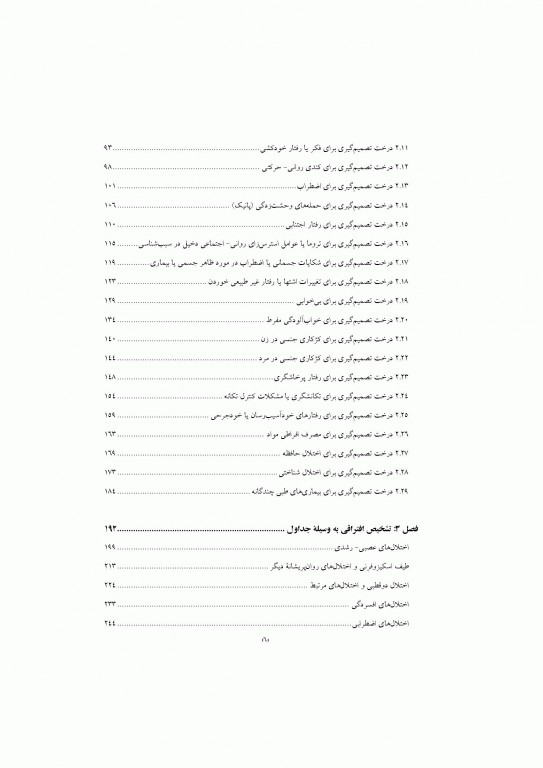 ۲.۱۱ درخت تصمیم‌گیری برای فکر یا رفتار خودکشی ........ ۹۳
۲.۱۲ درخت تصمیم‌گیری برای کندی روانی- حرکتی ........ ۹۸
۲.۱۳ درخت تصمیم‌گیری برای اضطراب ........ ۱۰۱
۲.۱۴ درخت تصمیم‌گیری برای حمله‌های وحشت‌زدگی (پانیک) ........ ۱۰۶
۲.۱۵ درخت تصمیم‌گیری برای رفتار اجتنابی ........ ۱۱۰
۲.۱۶ درخت تصمیم‌گیری برای تروما یا عوامل استرس‌زای روانی- اجتماعی دخیل در سبب‌شناسی ........ ۱۱۵
۲.۱۷ درخت تصمیم‌گیری برای شکایات جسمانی یا اضطراب در مورد ظاهر جسمی یا بیماری ........ ۱۱۹
۲.۱۸ درخت تصمیم‌گیری برای تغییرات اشتها یا رفتار غیر طبیعی خوردن ........ ۱۲۳
۲.۱۹ درخت تصمیم‌گیری برای بی‌خوابی ........ ۱۲۹
۲.۲۰ درخت تصمیم‌گیری برای خواب‌آلودگی مفرط ........ ۱۳۴
۲.۲۱ درخت تصمیم‌گیری برای کژکاری جنسی در زن ........ ۱۴۰
۲.۲۲ درخت تصمیم‌گیری برای کژکاری جنسی در مرد ........ ۱۴۴
۲.۲۳ درخت تصمیم‌گیری برای رفتار پرخاشگری ........ ۱۴۸
۲.۲۴ درخت تصمیم‌گیری برای تکانشگری یا مشکلات کنترل تکانه ........ ۱۵۴
۲.۲۵ درخت تصمیم‌گیری برای رفتارهای خودآسیب‌رسان یا خودجرحی ........ ۱۵۹
۲.۲۶ درخت تصمیم‌گیری برای مصرف افراطی مواد ........ ۱۶۳
۲.۲۷ درخت تصمیم‌گیری برای اختلال حافظه ........ ۱۶۹
۲.۲۸ درخت تصمیم‌گیری برای اختلال شناختی ........ ۱۷۳
۲.۲۹ درخت تصمیم‌گیری برای بیماری‌های طبی چندگانه ........ ۱۸۴
فصل ۳: تشخیص افتراقی به وسیلهٔ جداول ........ ۱۹۲
اختلال‌های عصبی- رشدی ........ ۱۹۹
طیف اسکیزوفرنی و اختلال‌های روان‌پریشانهٔ دیگر ........ ۲۱۳
اختلال دوقطبی و اختلال‌های مرتبط ........ ۲۲۴
اختلال‌های افسردگی ........ ۲۳۳
اختلال‌های اضطرابی ........ ۲۴۴